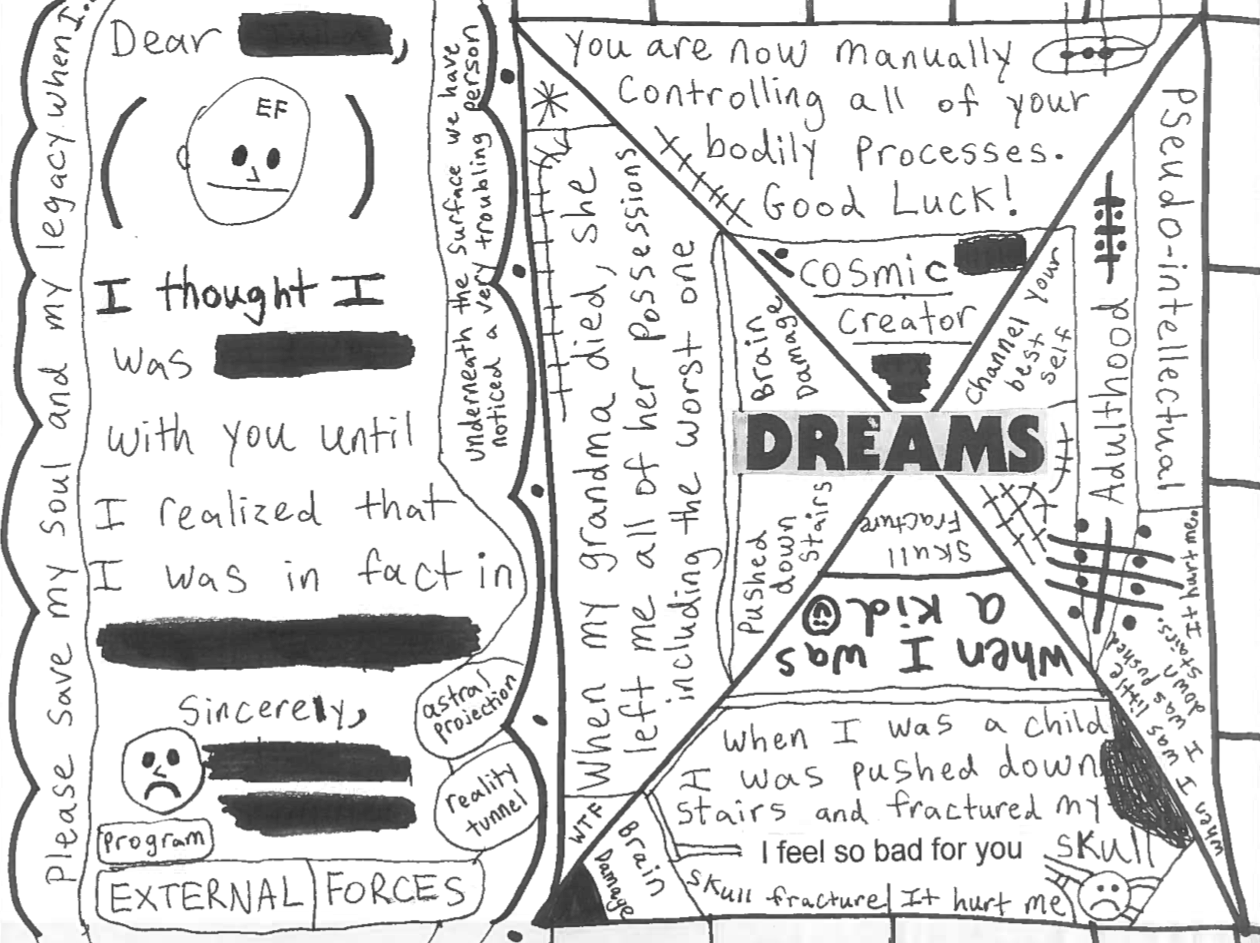 Please save my soul and my legacy when I..
Dear
EF
I thought I
was
with you until
I realized that
I was in fact in
Sincerely,
program
EXTERNAL FORCES
underneath the surface we have
noticed a very troubling person
astral
projection
reality
tunnel
You are now manually
controlling all of your
bodily processes.
Good Luck!
When my grandma died, she
left me all of her possessions
including the worst one
cosmic
creator
Brain
Damage
Channel your
best
self
DREAMS
Pushed
down
stairs
skull
fracture
When I was
a kid
Adulthood
Pseudo-intellectual
When I was little
I was pushed
down
stairs.
It hurt me.
when I was a child
I was pushed down
stairs and fractured my
skull
I feel so bad for you
skull fracture
It hurt me
WTF
Brain
Damage